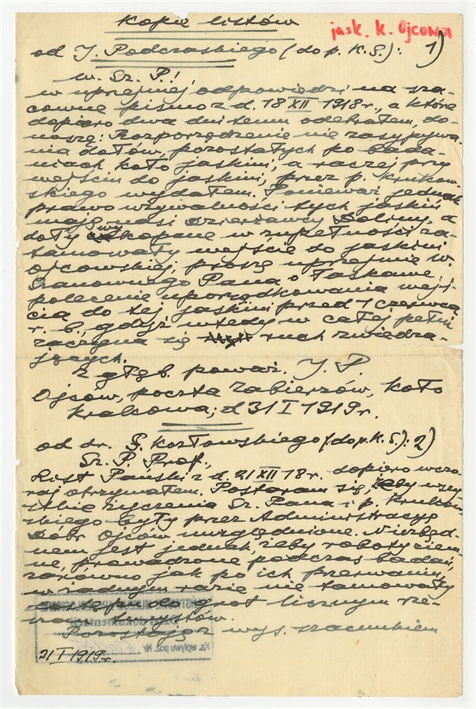 Kopie listów
jask. k. Ojcowa
od J. Podczaskiego (do p. K. S.): 1)
W. Sz. P.!
W uprzejmej odpowiedzi na sza-
cowne pismo z d. 18 XII 1918 r., a które
dopiero dwa dni temu odebrałem, do-
noszę: Rozporządzenie nie zasypywa-
nia dołów pozostałych po bada-
niach koło jaskini, a raczej przy
wejściu do jaskini, przez p. Krukow-
skiego wydałem. Ponieważ jednak
prawo używalności tych jaskiń
mają nasi dzierżawcy Doliny, a
doły wykopane w zupełności za-
tamowały wejście do jaskini
Ojcowskiej, proszę uprzejmie W.
Szanownego Pana o łaskawe
polecenie uporządkowania wejś-
cia do tej jaskini przed 1 czerwca
r. b., gdyż wtedy w całej pełni
zaczyna się ruch zwiedza-
jących.
Z głęb. poważ. J. P.
Ojców, poczta Zabierzów, koło
Krakowa; d 31 I 1919 r.
od dr. S. Kozłowskiego (do p. K. S.): 2)
Sz. P. Prof.,
List Pański z d. 21 XII 18 r. dopiero wczo-
raj otrzymałem. Postaram się, żeby wszy-
stkie życzenia Sz. Pana i p. Krukow-
skiego były przez Administrację
Dóbr Ojców uwzględnione. Niezbęd-
nem jest jednak, żeby roboty ziem-
ne, prowadzone podczas badań,
zarówno jak po ich przerwaniu,
w żadnym razie nie tamowały
dostępu do grot licznym rze-
szom turystów.
Pozostaję z wys. szacunkiem
21 I 1919 r.